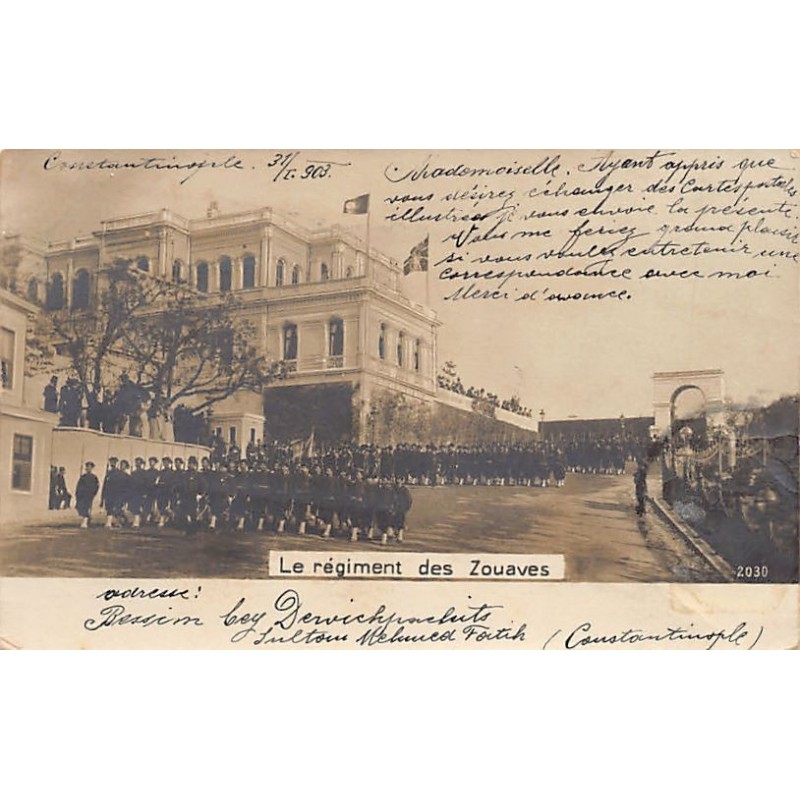 Constantinople. 31/I. 903.
Mademoiselle. Ayant appris que
vous désirez échanger des Cartes postales
illustrées je vous envoie la présente.
Vous me feriez grand plaisir
si vous voulez entretenir une
correspondance avec moi
Merci d'avance.
Le régiment des Zouaves
2030
adresse:
Bessim bey Dervichpachits
Sultan Mehmed Fatih (Constantinople)